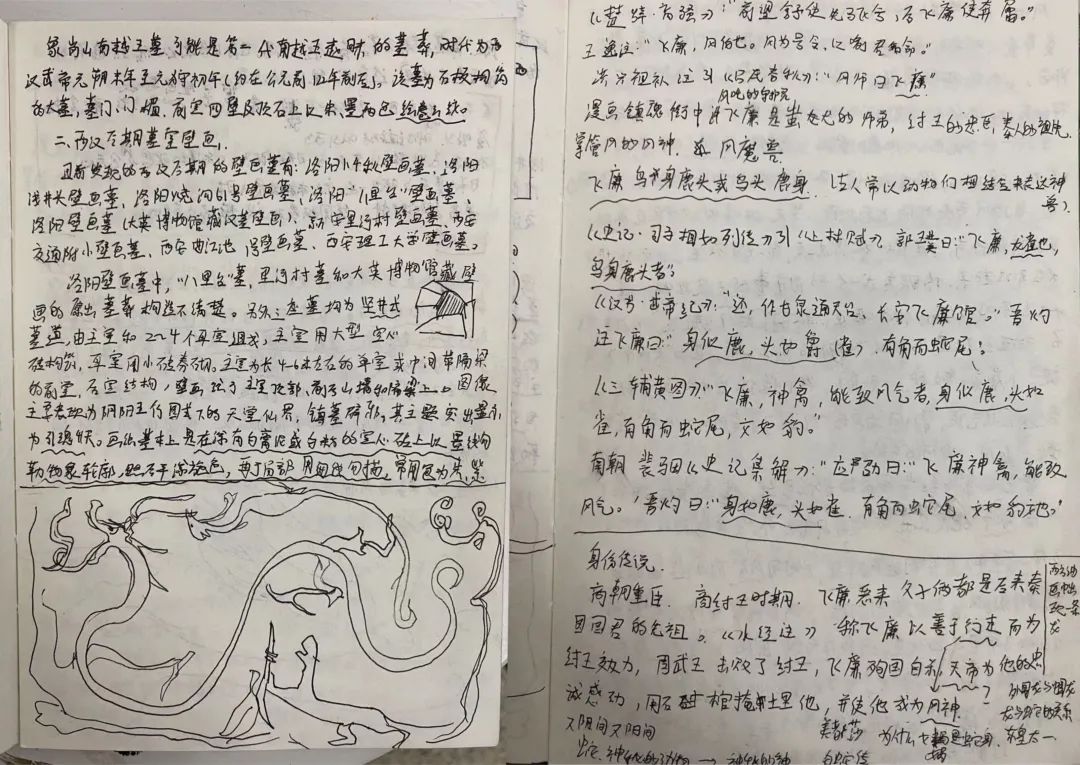 象岗山南越王墓可能是第一代南越王赵眜的墓葬,时代为西
汉武帝元朔末年至元狩初年(约在公元前122年前后)。该墓为石板构筑
的大墓,墓门、门楣、前室四壁及顶石上以朱、墨两色绘卷云纹。
二、西汉后期墓室壁画.
目前发现的西汉后期的壁画墓有:洛阳卜千秋壁画墓;洛阳
浅井头壁画墓,洛阳烧沟61号壁画墓,洛阳"八里台"壁画墓,
洛阳壁画墓(大英博物馆藏汉墓壁画),新安里河村壁画墓,西安
交通附小壁画墓,西安曲江池1号壁画墓,西安理工大学壁画墓。
洛阳壁画墓中,"八里台"墓,里河村墓和大英博物馆藏壁
画的原出墓葬构造不清楚。另外三座墓构为竖井式
墓道,由主室和2~4个耳室组成,主室用大型空心
砖构筑,耳室用小砖券砌。主室为长4~6米左右的单室或中间带隔梁
的前堂,后室结构,壁画位于主室顶部、前后山墙和隔梁上。图像
主要表现为阴阳五行图式下的天堂仙界,镇墓辟邪,其主题突出显示
为引魂升天。画法基本上是在涂有白膏泥或白粉的空心砖上以墨线勾
勒物象轮廓,然后平涂施色,再于局部用细线勾描,常用色为朱,紫
《楚辞·离骚》:"前望舒使先驱兮,后飞廉使奔属。"
王逸注:"飞廉,风伯也。风为号令,以喻君命。"
洪兴祖补注引《吕氏春秋》:"风师曰飞廉"
漫画镇魂街中
飞廉是蚩尤的师弟,纣王的
掌管风的风神 风魔兽
飞廉鸟身鹿头或鸟头鹿身.
《史记·司马相如列传》引《上林赋》,郭璞曰:"飞廉,龙雀也,
鸟身鹿头者";
《汉书·武帝纪》:"还,作甘泉通天台、长安飞廉馆。"晋灼
注飞廉曰:"身似鹿,头如爵(雀),有角而蛇尾";
《三辅黄图》:"飞廉,神禽,能致风气者,身似鹿,头如
雀,有角而蛇尾,文如豹。"
南朝 裴骃《史记集解》:"应劭曰:"飞廉神禽,能致
风气。'晋灼曰:"身如鹿,头如雀.有角而蛇尾,文如豹也。'
身份传说.
商朝重臣.商纣王时期.飞廉恶来 父子俩都是后来秦
国国君的先祖。《水经注》称飞廉以善于行走而为
纣王效力,周武王击败了纣王,飞廉殉国自杀,天帝为他的忠
诚感动,用石棺掩埋他,并使他成为风神.
美杜莎 为什么
又阴间又阳间
白蛇传